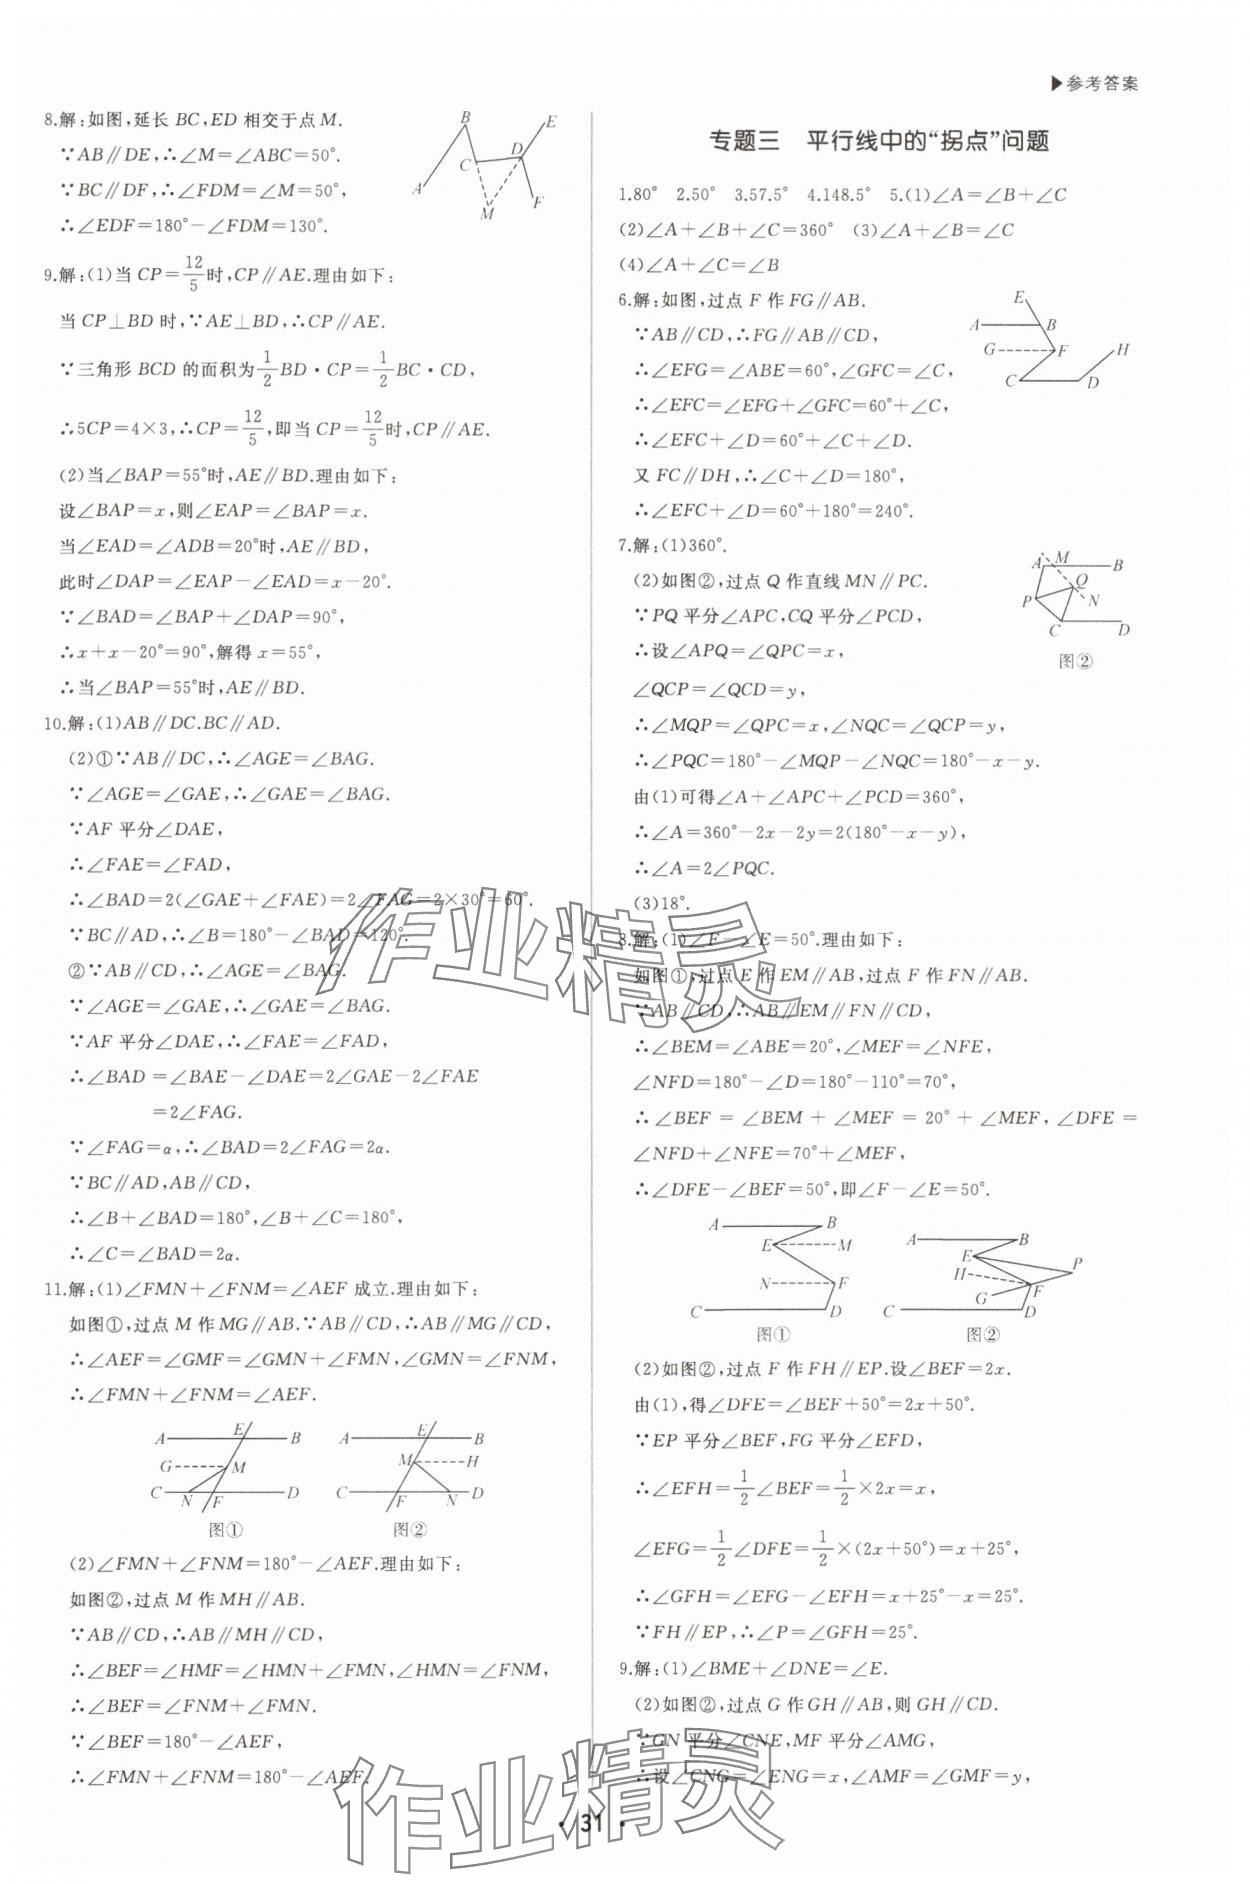 ▶参考答案
8.解:如图,延长BC,ED相交于点M.
∵AB∥DE,∴∠M=∠ABC=50°.
∵BC∥DF,∴∠FDM=∠M=50°,
∴∠EDF=180°-∠FDM=130°.
A
B
C
D
E
F
M
9.解:(1)当CP=12/5时,CP∥AE.理由如下:
当CP⊥BD时,∵AE⊥BD,∴CP∥AE.
∵三角形BCD的面积为1/2BD·CP=1/2BC·CD,
∴5CP=4×3,∴CP=12/5,即当CP=12/5时,CP∥AE.
(2)当∠BAP=55°时,AE∥BD.理由如下:
设∠BAP=x,则∠EAP=∠BAP=x.
当∠EAD=∠ADB=20°时,AE∥BD,
此时∠DAP=∠EAP-∠EAD=x-20°.
∵∠BAD=∠BAP+∠DAP=90°,
∴x+x-20°=90°,解得x=55°,
∴当∠BAP=55°时,AE∥BD.
10.解:(1)AB∥DC.BC∥AD.
(2)①∵AB∥DC,∴∠AGE=∠BAG.
∵∠AGE=∠GAE,∴∠GAE=∠BAG.
∵AF平分∠DAE,
∴∠FAE=∠FAD,
∴∠BAD=2(∠GAE+∠FAE)=2∠FAG=2×30°=60°.
∵BC∥AD,∴∠B=180°-∠BAD=120°.
②∵AB∥CD,∴∠AGE=∠BAG.
∵∠AGE=∠GAE,∴∠GAE=∠BAG.
∵AF平分∠DAE,∴∠FAE=∠FAD,
∴∠BAD=∠BAE-∠DAE=2∠GAE-2∠FAE
=2∠FAG.
∵∠FAG=α,∴∠BAD=2∠FAG=2α.
∵BC∥AD,AB∥CD,
∴∠B+∠BAD=180°,∠B+∠C=180°,
∴∠C=∠BAD=2α.
11.解:(1)∠FMN+∠FNM=∠AEF成立.理由如下:
如图①,过点M作MG∥AB.∵AB∥CD,∴AB∥MG∥CD,
∴∠AEF=∠GMF=∠GMN+∠FMN,∠GMN=∠FNM,
∴∠FMN+∠FNM=∠AEF.
A E B
G M
C N F D
图①
A E B
M H
C F N D
图②
(2)∠FMN+∠FNM=180°-∠AEF.理由如下:
如图②,过点M作MH∥AB.
∵AB∥CD,∴AB∥MH∥CD,
∴∠BEF=∠HMF=∠HMN+∠FMN,∠HMN=∠FNM,
∴∠BEF=∠FNM+∠FMN.
∵∠BEF=180°-∠AEF,
∴∠FMN+∠FNM=180°-∠AEF.
专题三 平行线中的“拐点”问题
1.80° 2.50° 3.57.5° 4.148.5° 5.(1)∠A=∠B+∠C
(2)∠A+∠B+∠C=360° (3)∠A+∠B=∠C
(4)∠A+∠C=∠B
6.解:如图,过点F作FG∥AB.
∵AB∥CD,∴FG∥AB∥CD,
∴∠EFG=∠ABE=60°,∠GFC=∠C,
∴∠EFC=∠EFG+∠GFC=60°+∠C,
∴∠EFC+∠D=60°+∠C+∠D.
又FC∥DH,∴∠C+∠D=180°,
∴∠EFC+∠D=60°+180°=240°.
E
A B
G F H
C D
7.解:(1)360°.
(2)如图②,过点Q作直线MN∥PC.
∵PQ平分∠APC,CQ平分∠PCD,
∴设∠APQ=∠QPC=x,
∠QCP=∠QCD=y,
∴∠MQP=∠QPC=x,∠NQC=∠QCP=y,
∴∠PQC=180°-∠MQP-∠NQC=180°-x-y.
由(1)可得∠A+∠APC+∠PCD=360°,
∴∠A=360°-2x-2y=2(180°-x-y),
∴∠A=2∠PQC.
(3)18°.
A M B
Q
P N
C D
图②
8.解:(1)∠F-∠E=50°.理由如下:
如图①,过点E作EM∥AB,过点F作FN∥AB.
∵AB∥CD,∴AB∥EM∥FN∥CD,
∴∠BEM=∠ABE=20°,∠MEF=∠NFE,
∠NFD=180°-∠D=180°-110°=70°,
∴∠BEF=∠BEM+∠MEF=20°+∠MEF,∠DFE=
∠NFD+∠NFE=70°+∠MEF,
∴∠DFE-∠BEF=50°,即∠F-∠E=50°.
A B
E M
N F
C D
图①
A B
E P
H
G F
C D
图②
(2)如图②,过点F作FH∥EP.设∠BEF=2x.
由(1),得∠DFE=∠BEF+50°=2x+50°.
∵EP平分∠BEF,FG平分∠EFD,
∴∠EFH=1/2∠BEF=1/2×2x=x,
∠EFG=1/2∠DFE=1/2×(2x+50°)=x+25°,
∴∠GFH=∠EFG-∠EFH=x+25°-x=25°.
∵FH∥EP,∴∠P=∠GFH=25°.
9.解:(1)∠BME+∠DNE=∠E.
(2)如图②,过点G作GH∥AB,则GH∥CD.
∵GN平分∠CNE,MF平分∠AMG,
∴设∠CNG=∠ENG=x,∠AMF=∠GMF=y,
·31·
作业精灵
作业精灵